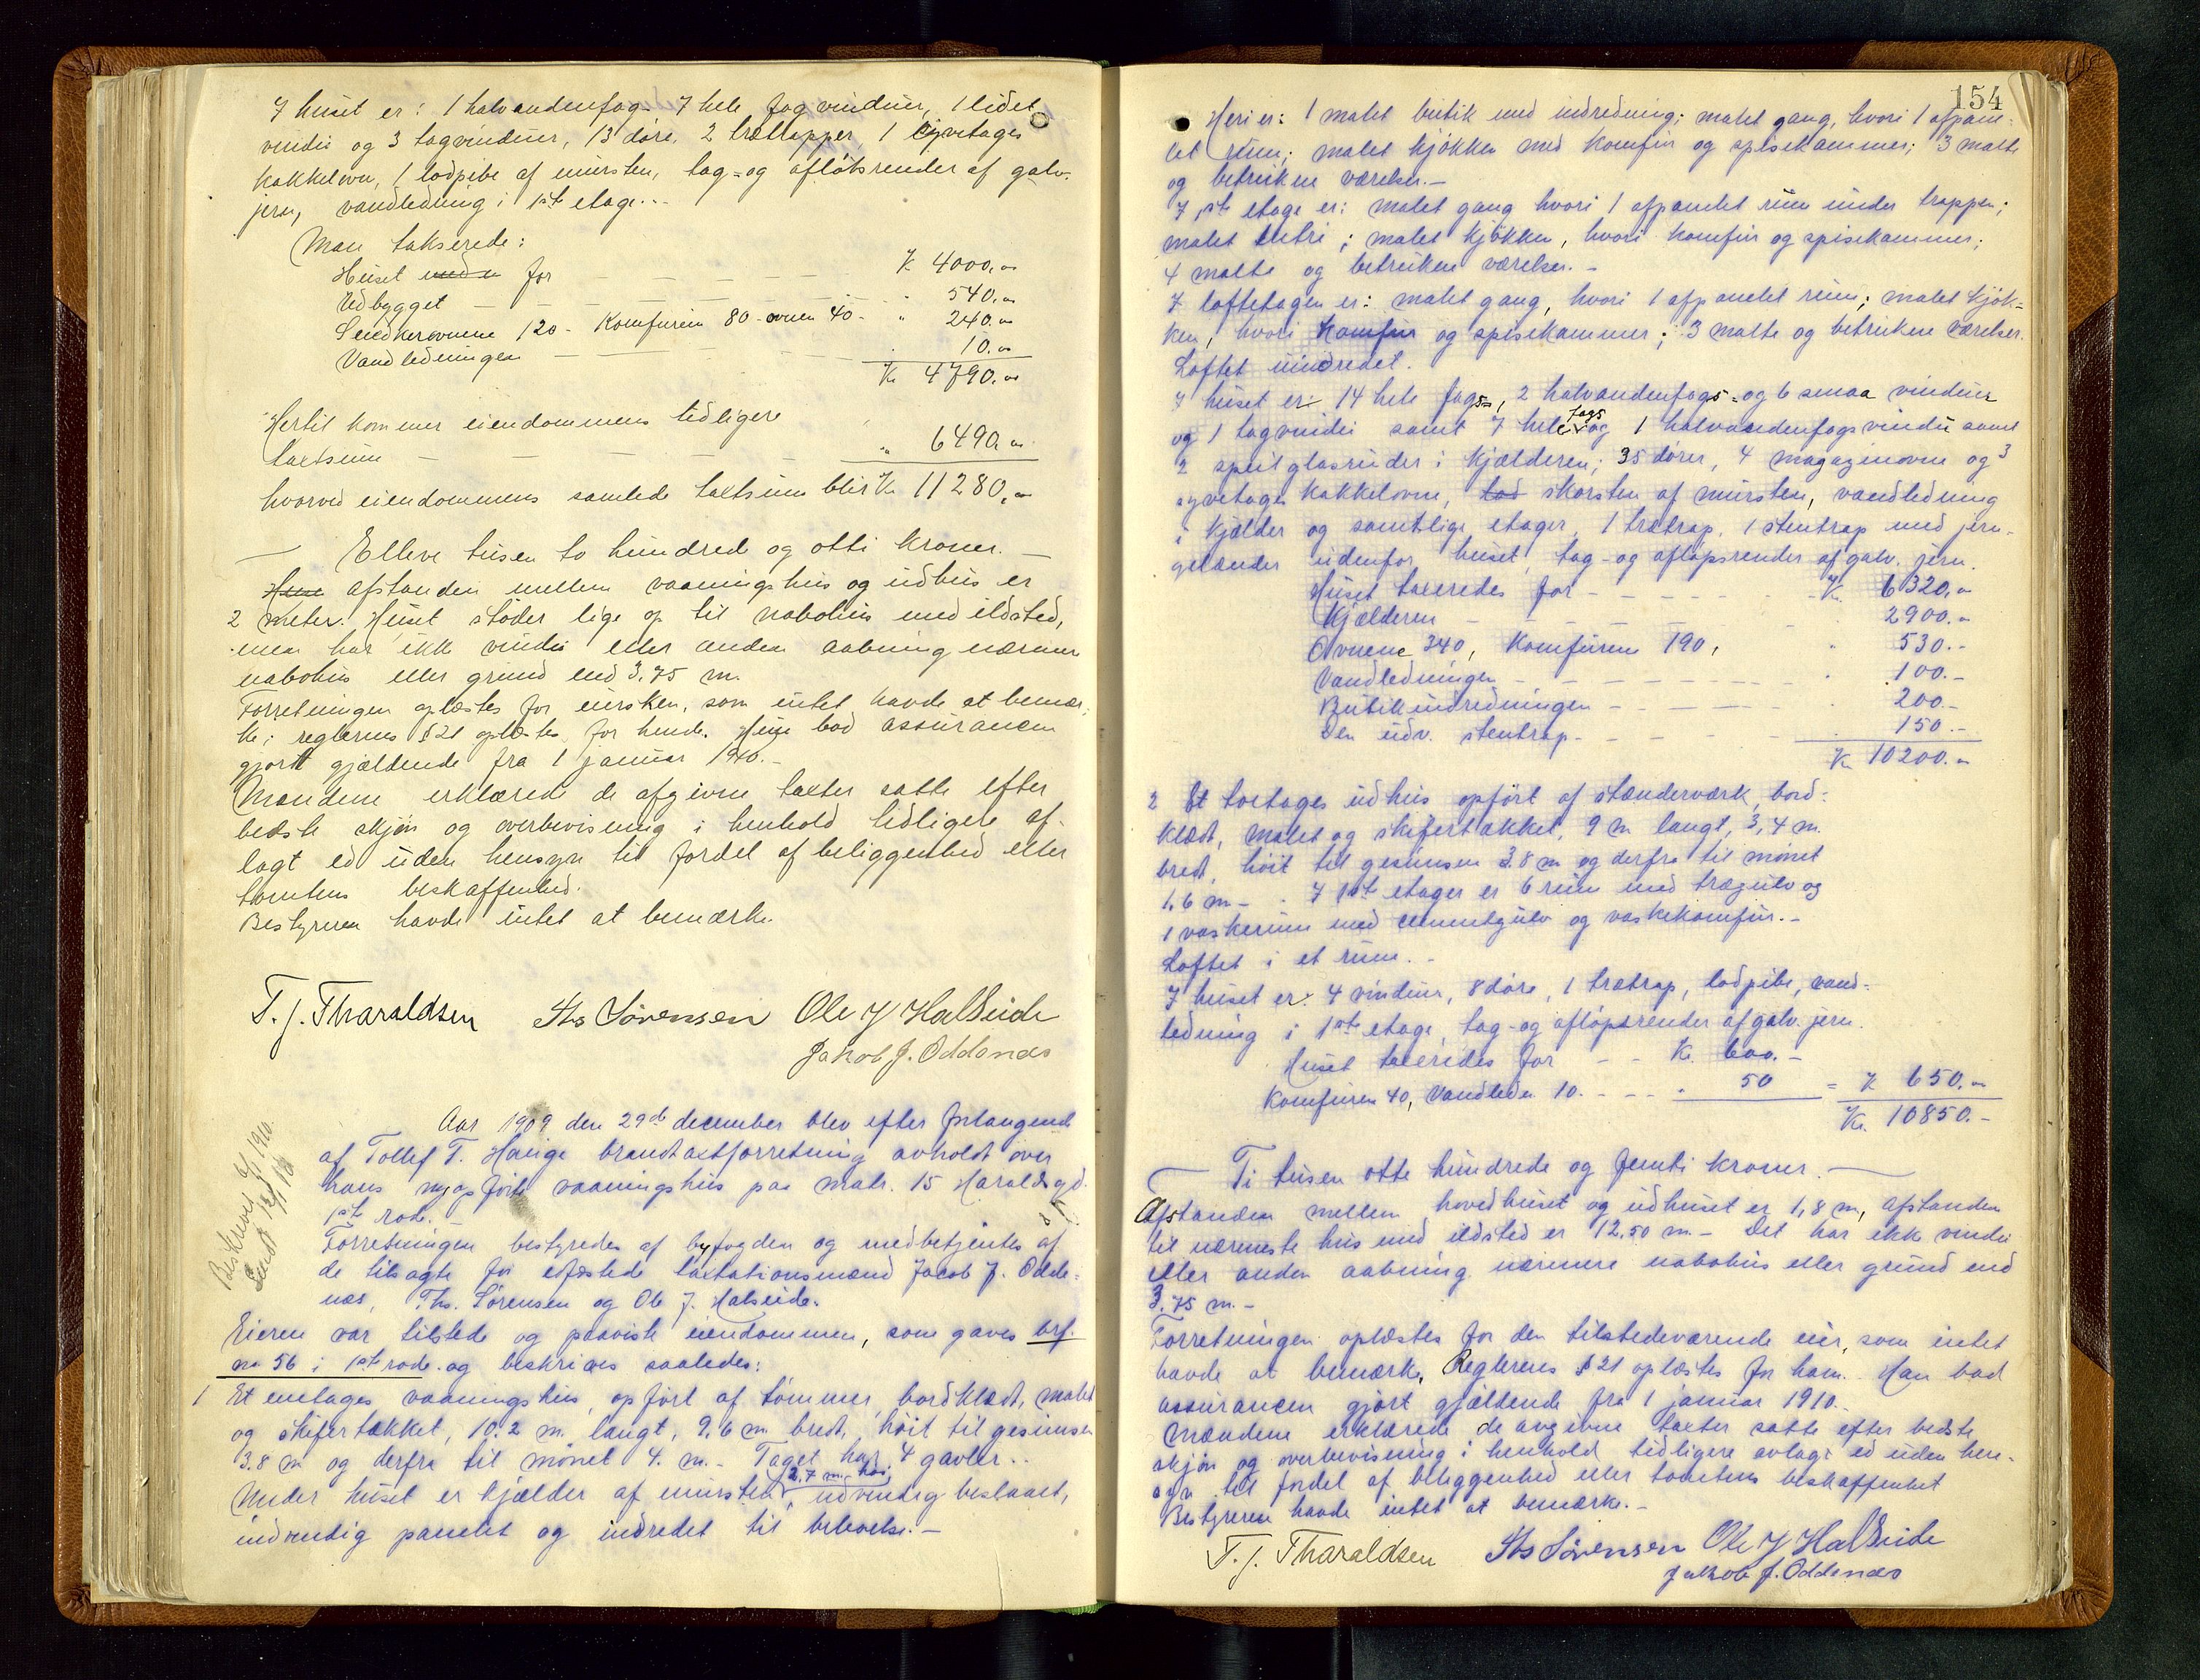 I huset er: 1 halvandenfag- 7 hele fag vinduer, 1 lidet
vindu og 3 tagvinduer, 13 døre, 2 trætrapper, 1 syvetages
kakkelovn, 1 lodpibe af mursten, tag- og afløbsrender af galv.
jern, vandledning i 1ste etage.-
Man takserede:
Huset for — — — K 4000,00
Udbygget — — — " 540,00
Svedkerovnene 120- Komfuren 80- ovnen 40- " 240.00
Vandledningen — — — 10.00
Kr 4790.00
Hertil kommer eiendommens tidligere
taxtsum — — — " 6490.00
hvorved eiendommens samlede taxtsum blir Kr 11280,00
— Elleve tusen to hundred og otti kroner. —
Huse afstanden mellem vaaningshus og udhus er
2 meter. Huset støder lige op til nabohus med ildsted,
men har ikke vindu eller anden aabning nærmere
nabohus eller grund end 3,75 m.
Forretningen oplæstes for eiersken, som intet havde at bemær-
ke; reglernes § 21 oplæstes for hende. Hun bad assurancen
gjort gjældende fra 1 januar 1910.-
Mændene erklærede de afgivne taxter satte efter
bedste skjøn og overbevisning i henhold tidligere af-
lagt ed uden hensyn til fordel af beliggenhed eller
tomtens beskaffenhed.
Bestyreren havde intet at bemærke.
T. J. Tharaldsen Ths Sørensen Ole J Halseide
Jakob J. Oddenæs
Beskrevet 6/1 1910.
Sendt 12/1 10
Aar 1909 den 29de december blev efter forlangende
af Tollef T. Hauge brandtaxtforretning avholdt over
hans nyopførte vaaningshus paa matr. 15 Haraldsgd.
1ste rode.-
Forretningen bestyredes af byfogden og medbetjentes af
de tilsagte for edfæstede taxtationsmænd Jacob J. Odde-
næs, Ths. Sørensen og Ole J. Halseide.
Eieren var tilstede og paaviste eiendommen, som gaves brf.
no 56 i 1ste rode og beskrives saaledes:
1 Et entages vaaningshus, opført af tømmer, bordklædt, malet
og skifertækket, 10.2 m. langt, 9.6 m. bredt, høit til gesimsen
3.8 m og derfra til mønet 4. m.- Taget har 4 gavler.-
2,7 m. høi
Under huset er kjælder af mursten, udvendig beslaaet,
indvendig panelet og indredet til beboelse.-
154
Heri er: 1 malet butik med indredning; malet gang, hvori 1 afpane-
let rum; malet kjøkken med komfur og spisekammer; 3 malte
og betrukne værelser.-
I 1ste etage er: malet gang hvori 1 afpanelet rum under trappen;
malet entri; malet kjøkken, hvori komfur og spisekammer;
4 malte og betrukne værelser.-
I loftetagen er: malet gang, hvori 1 afpanelet rum; malet kjøk-
ken, hvori komfur og spisekammer; 3 malte og betrukne værelser.
Loftet uindredet.
I huset er 14 hele fags-, 2 halvandenfags- og 6 smaa vinduer
og 1 tagvindu samt 7 hele fags og 1 halvandenfagsvindu samt
2 speilglasruder i kjælderen; 35 dører, 4 magazinovne og 3
syvetages kakkelovne, lod skorsten af mursten, vandledning
i kjælder og samtlige etager, 1 trætrap, 1 stentrap med jern-
gelænder udenfor huset, tag- og afløpsrender af galv. jern.
Huset taxeredes for - - - Kr. 6320,00
Kjælderen - - - 2900.-
Ovnene 340, Komfurene 190, " 530.-
Vandledningen - - - 100.-
Butikindredningen - - - 200-
Den udv. stentrap - - - 150.-
Kr 10200.00
2 Et toetages udhus opført af stænderværk, bord-
klædt, malet og skifertækket, 9 m. langt, 3,4 m.
bredt, høit til gesimsen 3.8 m og derfra til mønet
1,6 m -. I 1ste etage er 6 rum med trægulv og
1 vaskerum med cementgulv og vaskekomfur.-
Loftet i et rum.-
I huset er 4 vinduer, 8 døre, 1 trætrap, lodpibe, vand-
ledning i 1ste etage, tag- og afløpsrender af galv. jern.
Huset taxeredes for - - Kr. 600.-
Komfuren 40, Vandledn 10. - - - " 50 = K 650.00
Kr. 10850.-
— Ti tusen otte hundrede og femti kroner. —
Afstanden mellem hovedhuset og udhuset er 1,8 m, afstanden
til nærmeste hus med ildsted er 12,50 m.- Det har ikke vindu
eller anden aabning nærmere nabohus eller grund end
3.75 m.-
Forretningen oplæstes for den tilstedeværende eier, som intet
havde at bemærke, Reglernes § 21 oplæstes for ham. Han bad
assurancen gjort gjældende fra 1 januar 1910.
Mændene erklærede de avgivne taxter satte efter bedste
skjøn og overbevisning i henhold tidligere avlagt ed uden hen-
syn til fordel af beliggenhed eller tomtens beskaffenhet
Bestyreren havde intet at bemærke.-
T. J. Tharaldsen Ths Sørensen Ole J Halseide
Jakob J. Oddenæs